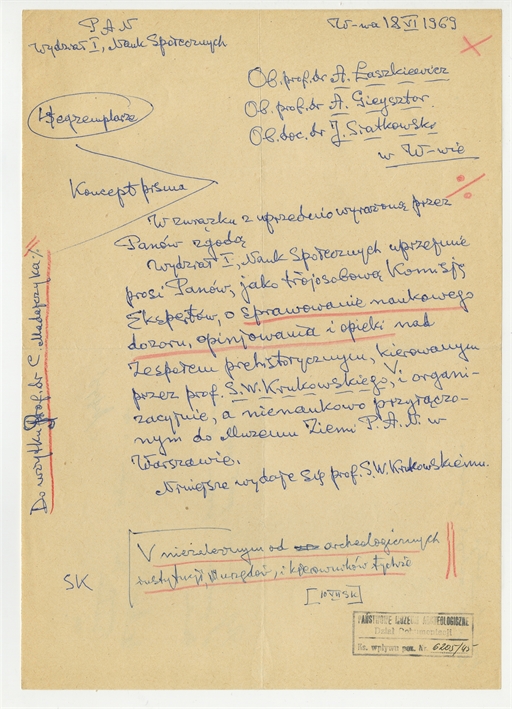 P.A.N
Wydział I, Nauk Społecznych
W-wa 18 VI 1969
Ob. prof. dr A. Łaszkiewicz
Ob. prof. dr A. Gieysztor
Ob. doc. dr J. Siatkowski
w W-wie
egzemplarze
Koncept pisma
W związku z uprzednio wyrażoną przez
Panów zgodą
Wydział I, Nauk Społecznych uprzejmie
prosi Panów, jako trójosobową Komisję
Ekspertów, o sprawowanie naukowego
dozoru, opinjowania i opieki nad
Zespołem prehistorycznym, kierowanym
przez prof. S.W. Krukowskiego, V i organi-
zacyjnie, a nienaukowo przyłączo-
nym do Muzeum Ziemi P.A.N. w
Warszawie.
Niniejsze wydaje się prof. S.W. Krukowskiemu.
Do użytku prof. dr C. Madajczyka
V niezależnym od archeologicznych
instytucji, urzędów, i kierowników tychże
[10 VII SK]
SK
PAŃSTWOWE MUZEUM ARCHEOLOGICZNE
Dział Dokumentacji
Ks. wpływu poz. Nr. 6205/45